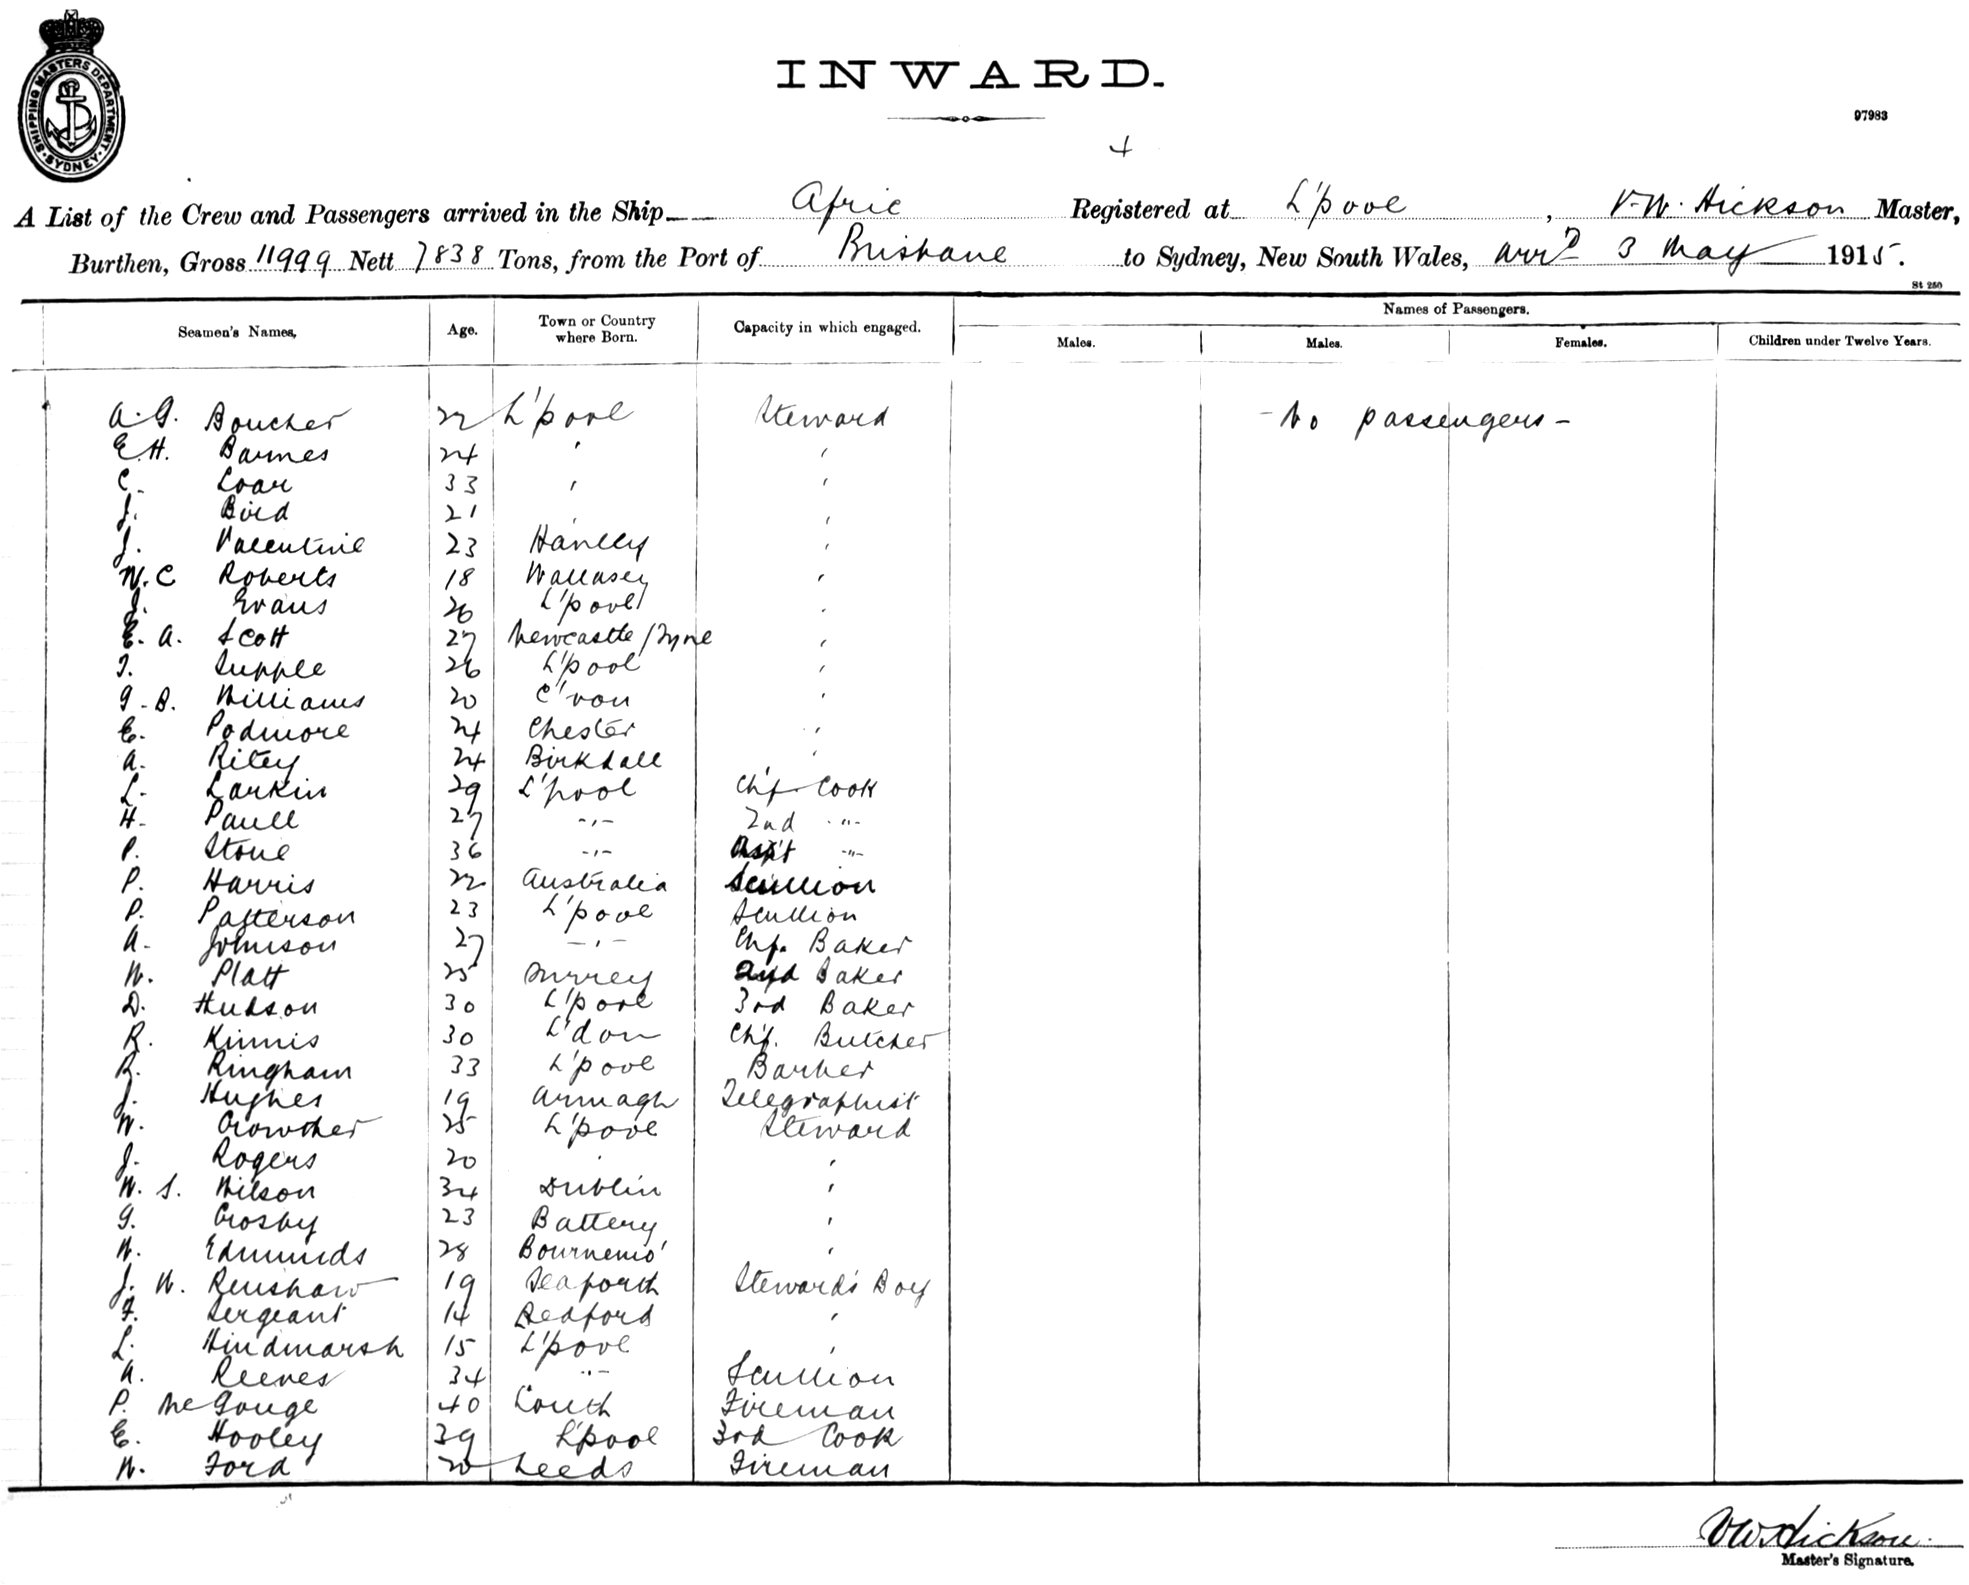 SHIPPING MASTERS DEPARTMENT · SYDNEY ·
INWARD.
97983
4
A List of the Crew and Passengers arrived in the Ship Afric Registered at L'pool, V.W. Hickson Master,
Burthen, Gross 11999 Nett 7838 Tons, from the Port of Brisbane to Sydney, New South Wales, arrd 3 May 1915.
St 250
Seamen's Names, Age. Town or Country where Born. Capacity in which engaged. Names of Passengers.
Males. Males. Females. Children under Twelve Years.
A. G. Boucher 22 L'pool Steward - No passengers -
E. H. Barnes 24 " "
C. Loar 33 " "
J. Bird 21 " "
J. Valentine 23 Hanley "
W. C Roberts 18 Wallasey "
J. Evans 26 L'pool "
E. A. Scott 27 Newcastle/Tyne "
T. Supple 26 L'pool "
G. B. Williams 20 C'von "
E. Podmore 24 Chester "
A. Riley 24 Birkdale "
L. Larkin 29 L'pool Ch'f Cook
H. Paull 27 -"- 2nd -"-
P. Stone 36 -"- Ass't -"-
P. Harris 22 Australia Scullion
P. Patterson 23 L'pool Scullion
A. Johnson 27 -"- Chf. Baker
W. Platt 25 Surrey 2nd Baker
D. Hudson 30 L'pool 3rd Baker
R. Kinnis 30 L'don Ch'f. Butcher
R. Ringham 33 L'pool Barber
J. Hughes 19 Armagh Telegraphist
W. Crowther 25 L'pool Steward
J. Rogers 20 " "
W. S. Wilson 34 Dublin "
G. Crosby 23 Battery "
W. Edmunds 28 Bournemo' "
J. W. Renshaw 19 Seaforth Steward's Boy
F. Sergeant 14 Bedford "
L. Hindmarsh 15 L'pool "
A. Reeves 34 -"- Scullion
P. McGouge 40 Louth Fireman
E. Hooley 39 L'pool 3rd Cook
W. Ford 20 Leeds Fireman
VW Hickson
Master's Signature.